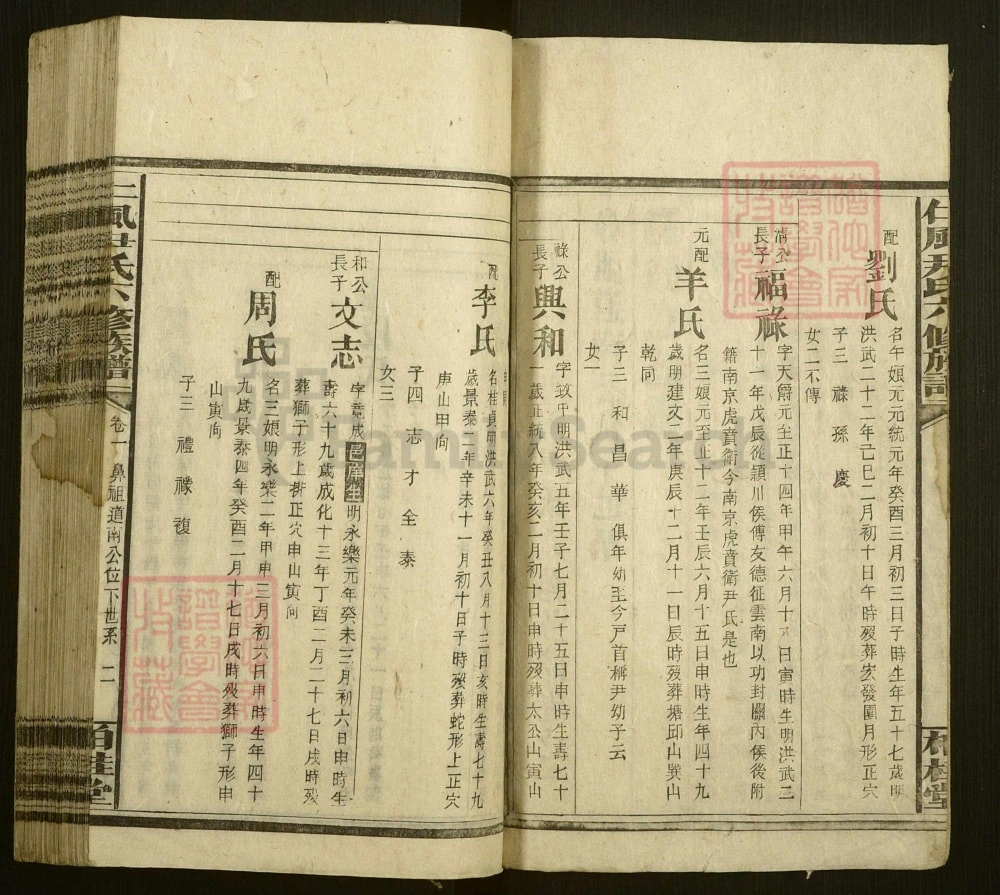 仁風尹氏六修族譜
柏桂堂
配劉氏
名午娘元元統元年癸酉三月初三日子時生年五十七歲明
洪武二十二年己巳二月初十日午時歿葬宏發園月形正穴
子三 祿 孫 慶
女二不傳
清公長子福祿
字天爵元至正十四年甲午六月十六日寅時生明洪武二
十一年戊辰從頴川侯傅友德征雲南以功封關內侯後附
籍南京虎賁衛今南京虎賁衛尹氏是也
元配羊氏
名三娘元至正十二年壬辰六月十五日申時生年四十九
歲明建文二年庚辰十二月十一日辰時歿葬塘邱山巽山
乾向
子三 和 昌 華 俱年幼至今戸首稱尹幼子云
女一
祿公長子興和
字致中明洪武五年壬子七月二十五日申時生壽七十
一歲正統八年癸亥二月初十日申時歿葬太公山寅山
配李氏
名桂貞明洪武六年癸丑八月十三日亥時生壽七十九
歲景泰二年辛未十一月初十日子時歿葬蛇形上正穴
庚山甲向
子四 志 才 全 泰
女三
和公長子文志
字竟成邑庠生明永樂元年癸未三月初六日申時生
壽六十九歲成化十三年丁酉二月二十七日戌時歿
葬獅子形上排正穴申山寅向
配周氏
名三娘明永樂二年甲申三月初六日申時生年四十
九歲景泰四年癸酉二月十七日戌時歿葬獅子形申
山寅向
子三 禮 禄 復
仁風尹氏六修族譜
卷一 鼻祖道南公位下世系 二
柏桂堂
FamilySearch